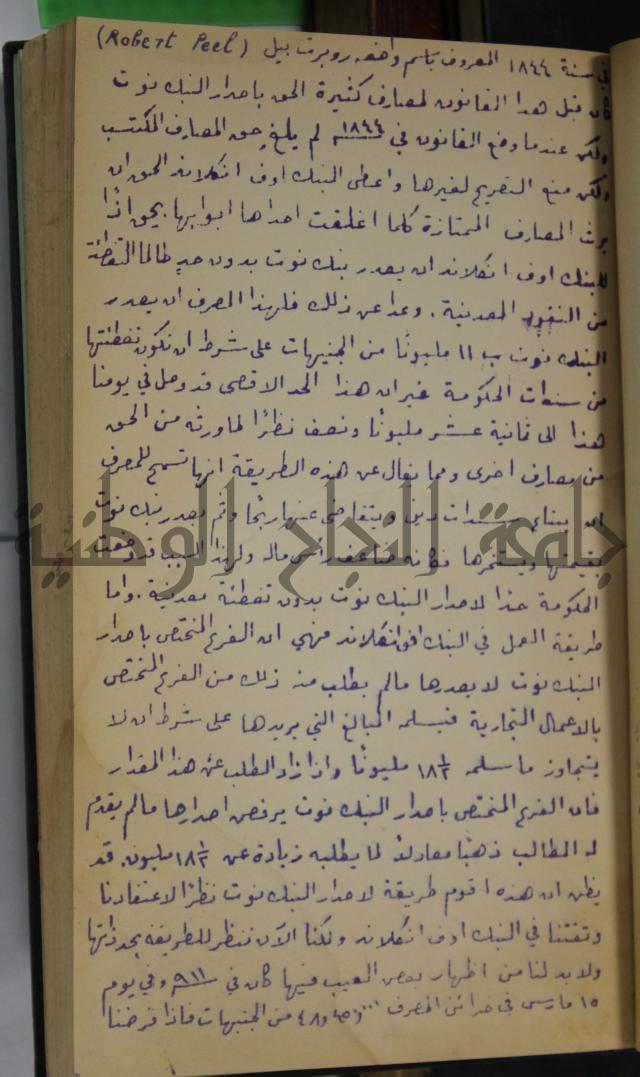 في سنة ١٨٤٤ المعروف باسم واضعه روبرت بيل (Robert Peel)
كان قبل هذا القانون لمصارف كثيرة الحق باصدار البنك نوت
ولكن عندما وضع القانون في ١٨٤٤ لم يلغ حق المصارف المكتسب
ولكن منع التصريح لغيرها واعطى البنك اوف انكلاند الحق ان
يرث المصارف الممتازة كلما اغلقت احداها ابوابها. يحق اذًا
للبنك اوف انكلاند ان يصدر بنك نوت بدون حد طالما التغطية
من النقود المعدنية. وعدا عن ذلك فلهذا المصرف ان يصدر
البنك نوت ب ١١ مليونًا من الجنيهات على شرط ان تكون تغطيتها
من سندات الحكومة غير ان هذا الحد الاقصى قد وصل في يومنا
هذا الى ثمانية عشر مليونًا ونصف نظرًا لما ورثه من الحق
من مصارف اخرى ومما يقال عن هذه الطريقة انها تسمح للمصرف
ان يبتاع سندات دين ويتقاضى عنها ربحًا ثم يصدر بنك نوت
بقيمتها ويستثمرها فكأنه ضاعف رأس ماله ولهذا السبب قد وضعت
الحكومة حدًا لاصدار البنك نوت بدون تغطية معدنية. واما
طريقة العمل في البنك اوف انكلاند فهي ان الفرع المختص باصدار
البنك نوت لا يصدرها مالم يطلب منه ذلك من الفرع المختص
بالاعمال التجارية فيسلمه المبالغ التي يريدها على شرط ان لا
يتجاوز ما سلمه ١٨½ مليونًا واذا زاد الطلب عن هذا المقدار
فان الفرع المختص باصدار البنك نوت يرفض اصدارها مالم يقدم
له المطالب ذهبًا معادلًا لما يطلبه زيادة عن ١٨½ مليون. قد
يظن ان هذه اقوم طريقة لاصدار البنك نوت نظرًا لاعتقادنا
وثقتنا في البنك اوف انكلاند ولكنا الآن ننظر للطريقة بحد ذاتها
ولا بد لنا من اظهار بعض العيب فيها كان في ٩١١ وفي يوم
١٥ مارس في خزائن المصرف من الجنيهات فاذا فرضنا
جامعة النجاح الوطنية